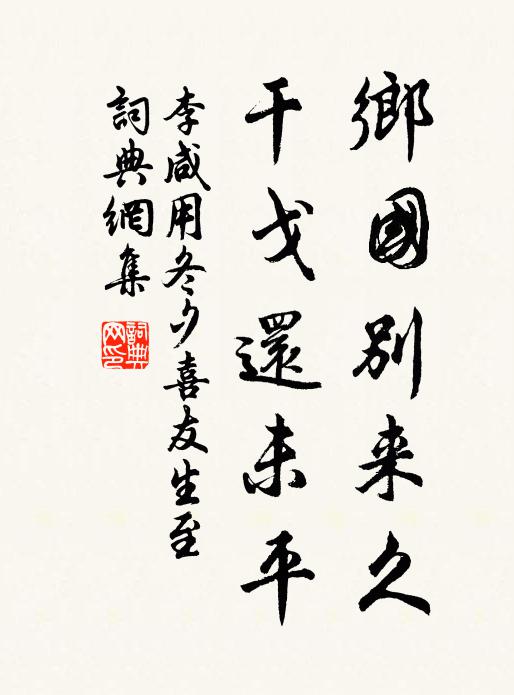 鄉國別来久
干戈還未平
李咸用冬夕喜友生至
詞典網集
詞典網印